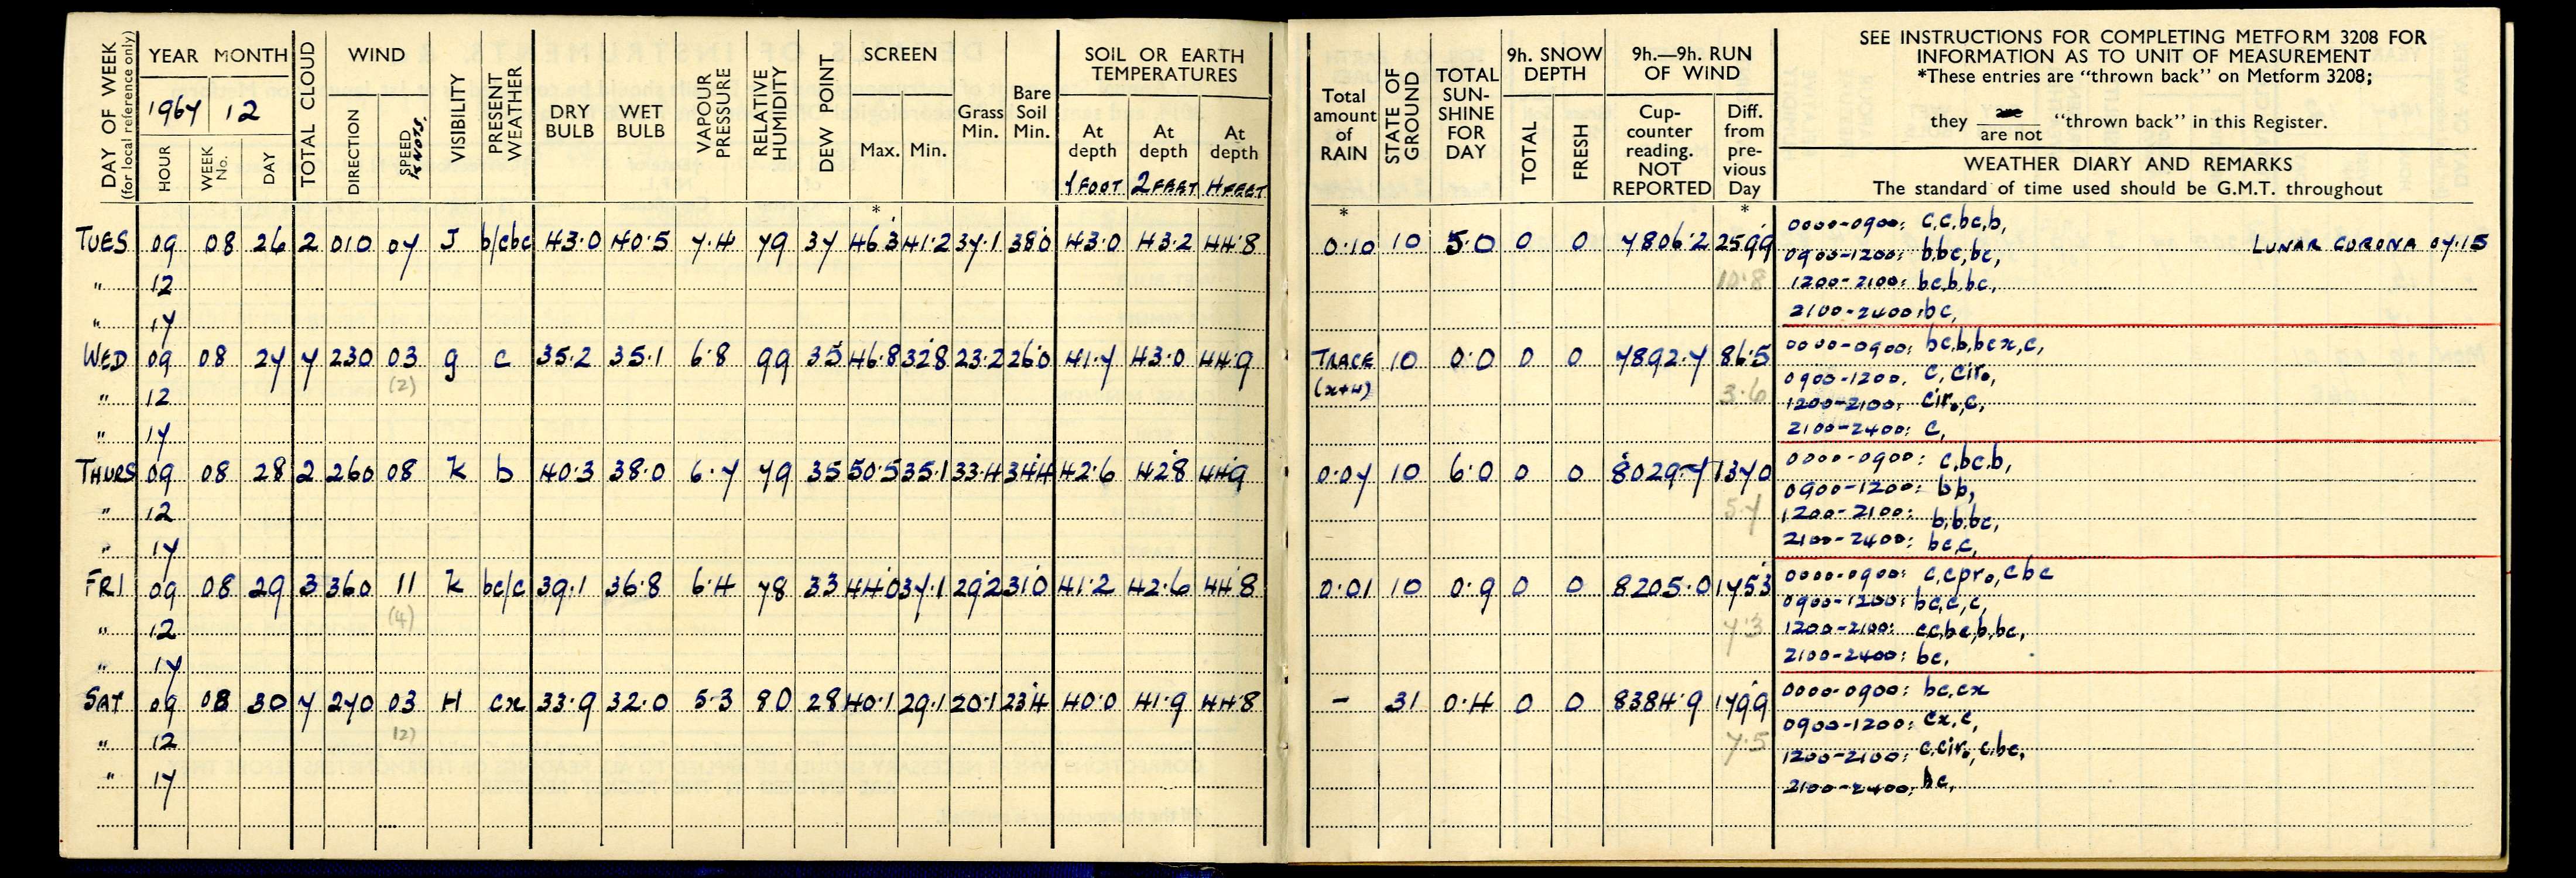 DAY OF WEEK (for local reference only)
YEAR MONTH
1967 12
HOUR WEEK No. DAY
TOTAL CLOUD
WIND
DIRECTION SPEED KNOTS.
VISIBILITY
PRESENT WEATHER
DRY BULB
WET BULB
VAPOUR PRESSURE
RELATIVE HUMIDITY
DEW POINT
SCREEN
Max. Min.
Grass Min.
Bare Soil Min.
SOIL OR EARTH TEMPERATURES
At depth 1 FOOT
At depth 2 FEET
At depth 4 FEET
Total amount of RAIN
STATE OF GROUND
TOTAL SUN-SHINE FOR DAY
9h. SNOW DEPTH
TOTAL FRESH
9h.—9h. RUN OF WIND
Cup-counter reading. NOT REPORTED
Diff. from pre-vious Day
SEE INSTRUCTIONS FOR COMPLETING METFORM 3208 FOR
INFORMATION AS TO UNIT OF MEASUREMENT
*These entries are "thrown back" on Metform 3208;
they are / are not "thrown back" in this Register.
WEATHER DIARY AND REMARKS
The standard of time used should be G.M.T. throughout
* * *
TUES 09 08 26 2 010 07 J b/cbc 43.0 40.5 7.4 79 37 46.3 41.2 37.1 38.0 43.0 43.2 44.8 0.10 10 5.0 0 0 7806.2 259.9
0000-0900: c,c,bc,b, LUNAR CORONA 07.15
0900-1200: b,bc,bc,
" 12 10.8 1200-2100: bc,b,bc,
" 17 2100-2400: bc,
WED 09 08 27 7 230 03 g c 35.2 35.1 6.8 99 35 46.8 32.8 23.2 26.0 41.7 43.0 44.9 TRACE 10 0.0 0 0 7892.7 86.5
(2) (x+w)
0000-0900: bc,b,bcx,c,
0900-1200. c, cir₀,
" 12 3.6 1200-2100: cir₀,c,
" 17 2100-2400: c,
THURS 09 08 28 2 260 08 K b 40.3 38.0 6.7 79 35 50.5 35.1 33.4 34.4 42.6 42.8 44.9 0.07 10 6.0 0 0 8029.7 137.0
0000-0900: c,bc,b,
0900-1200: bb,
" 12 5.7 1200-2100: b,b,bc,
" 17 2100-2400: bc,c,
FRI 09 08 29 3 360 11 K bc/c 39.1 36.8 6.4 78 33 44.0 37.1 29.2 31.0 41.2 42.6 44.8 0.01 10 0.9 0 0 8205.0 175.3
(4)
0000-0900: c,cpr₀,cbc
0900-1200: bc,c,c,
" 12 7.3 1200-2100: c,c,bc,b,bc,
" 17 2100-2400: bc,
SAT 09 08 30 7 270 03 H cx 33.9 32.0 5.3 80 28 40.1 29.1 20.1 23.4 40.0 41.9 44.8 - 31 0.4 0 0 8384.9 179.9
(2)
0000-0900: bc,cx
0900-1200: cx,c,
" 12 7.5 1200-2100: c,cir₀,c,bc,
" 17 2100-2400: bc,